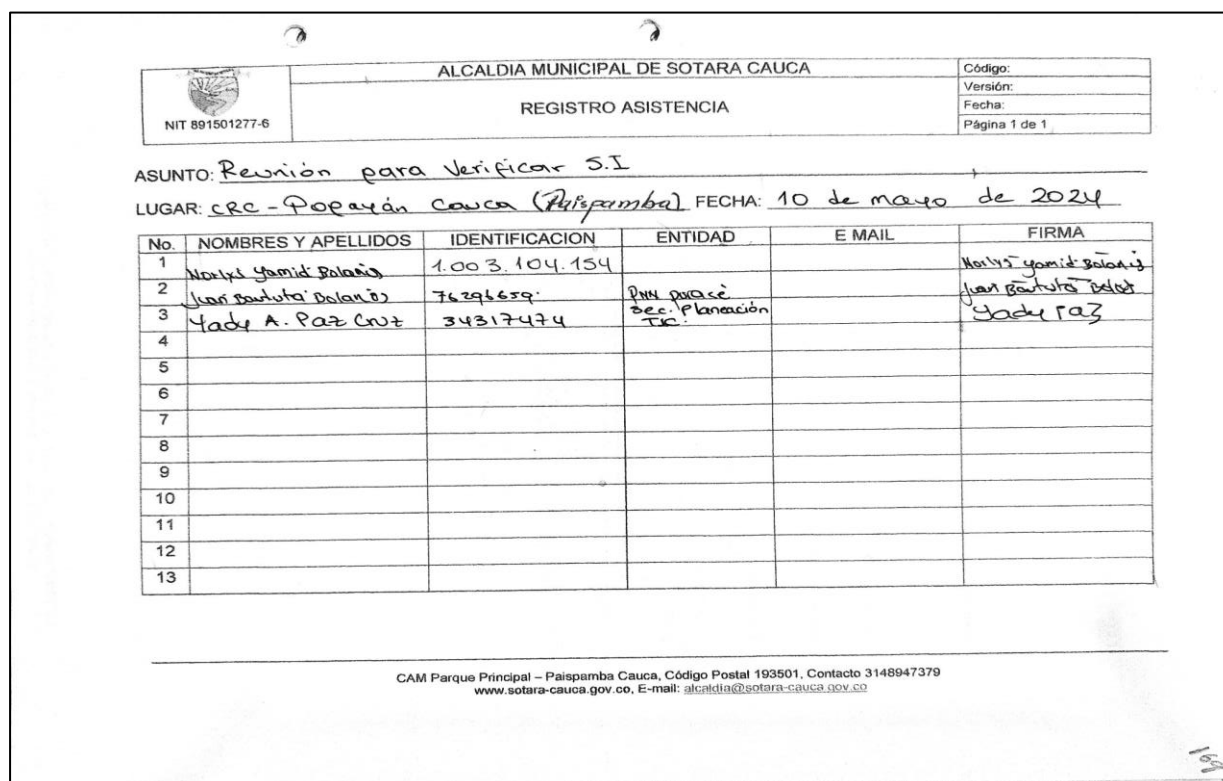 ALCALDIA MUNICIPAL DE SOTARA CAUCA
REGISTRO ASISTENCIA
NIT 891501277-6
Código:
Versión:
Fecha:
Página 1 de 1
ASUNTO: Reunión para Verificar S.I
LUGAR: CRC - Popayán Cauca (Paispamba) FECHA: 10 de mayo de 2024
No. NOMBRES Y APELLIDOS IDENTIFICACION ENTIDAD E MAIL FIRMA
1 Yamid Bolaños 1.003.104.154 Yamid Bolaños
2 Juan Bautista Bolaños 76296659. PNN puracé Juan Bautista
3 Yady A. Paz Cruz 34317474 Sec. Planeación TIC. Yady Paz
4
5
6
7
8
9
10
11
12
13
CAM Parque Principal – Paispamba Cauca, Código Postal 193501, Contacto 3148947379
www.sotara-cauca.gov.co, E-mail: alcaldia@sotara-cauca.gov.co